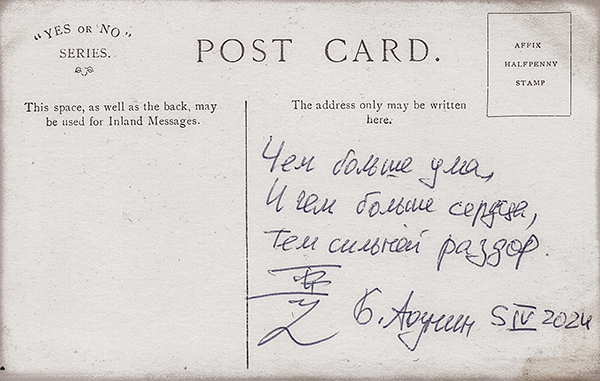 "YES OR NO"
SERIES.
POST CARD.
AFFIX
HALFPENNY
STAMP
This space, as well as the back, may
be used for Inland Messages.
The address only may be written
here.
Чем больше ума,
И чем больше сердца,
Тем сильней раздор.
Б. Акунин 5 IV 2024